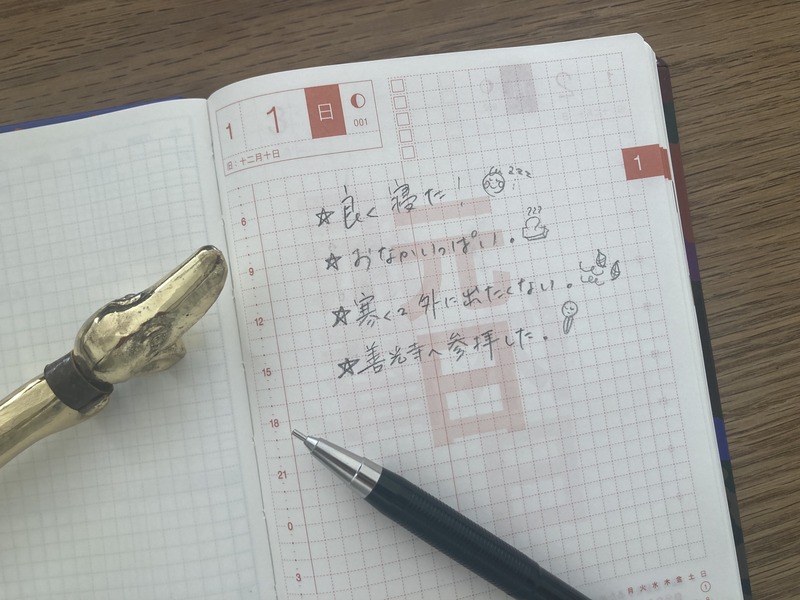 1 1 日
001
旧:十二月十日
1
元日
☆良く寝た! zzz
☆おなかいっぱい。
☆寒くて外に出たくない。
☆善光寺へ参拝した。
6
9
12
15
18
21
0
3
月 火 水 木 金 土 日
1